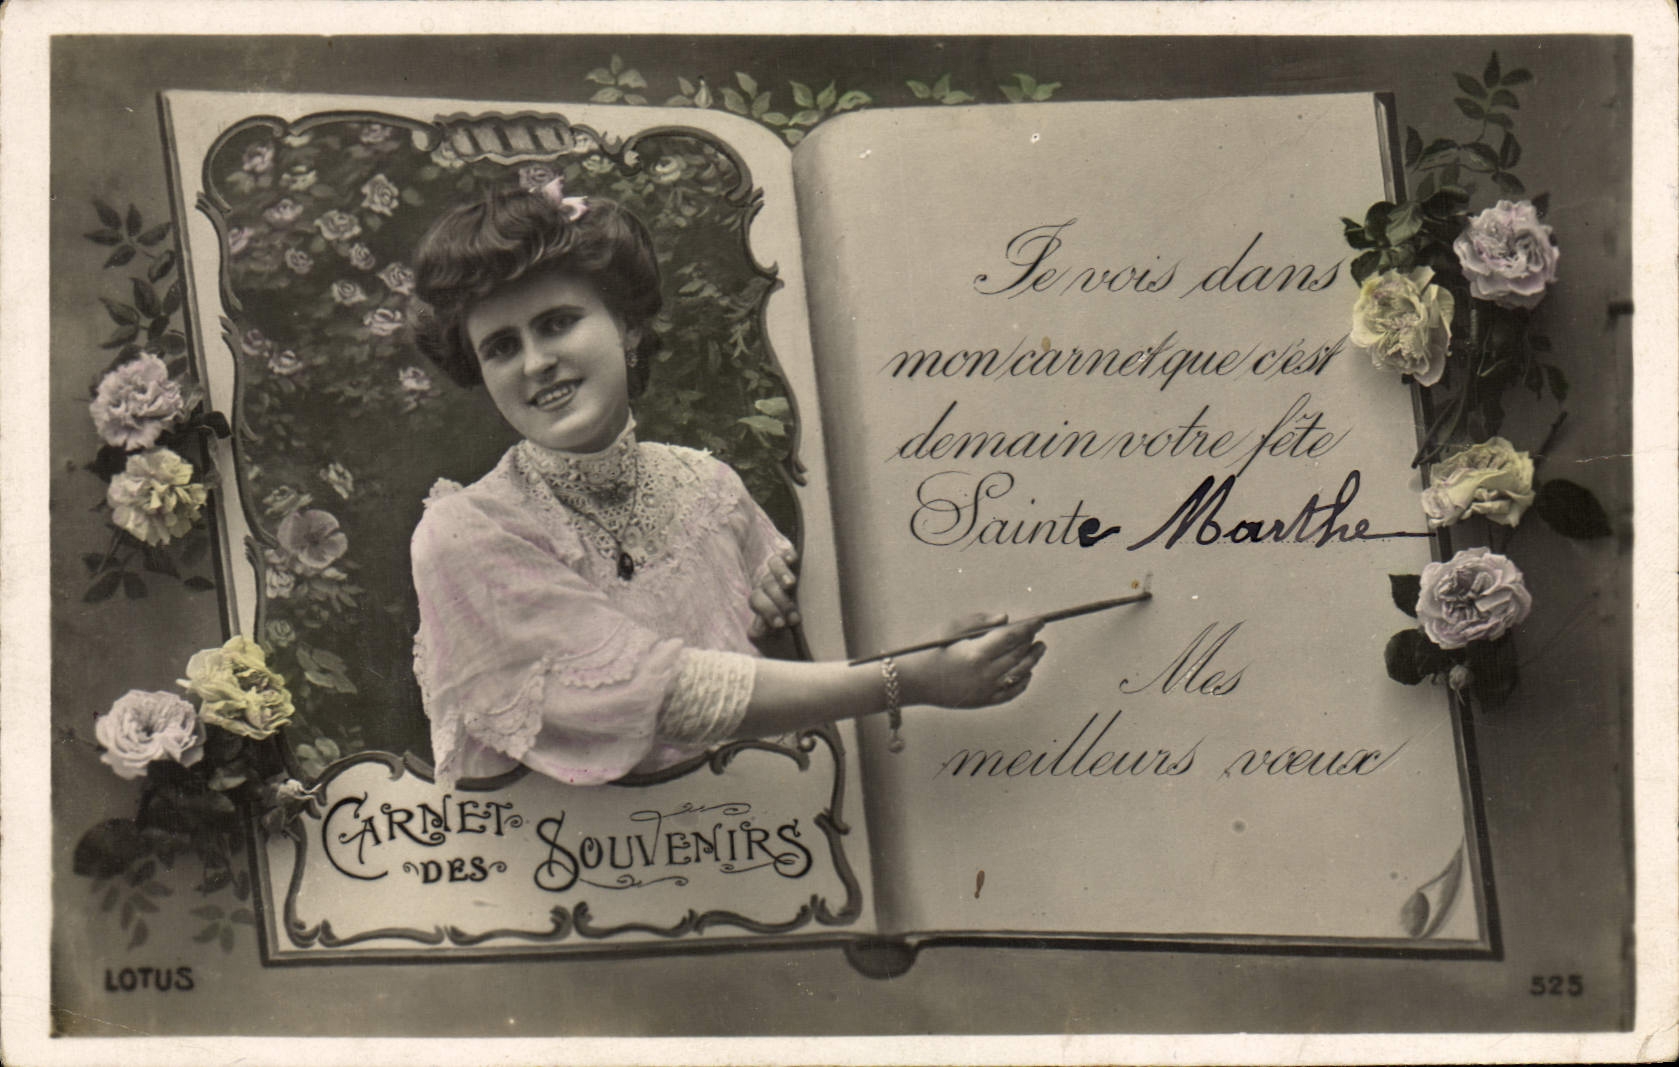 Je vois dans
mon carnet que c'est
demain votre fête
Sainte Marthe
Mes
meilleurs vœux
CARNET
DES SOUVENIRS
LOTUS
525